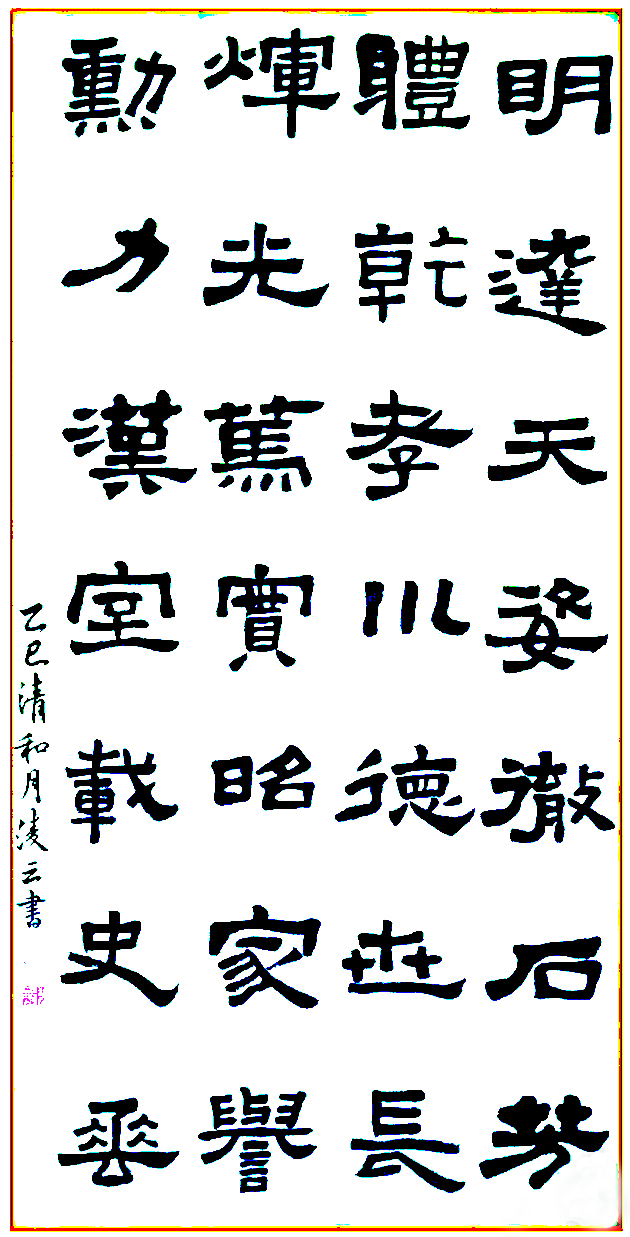 明達天姿徹石
體乾孝川德世長
輝光篤實昭家譽
勳力漢室載史
乙巳清和月凌云書